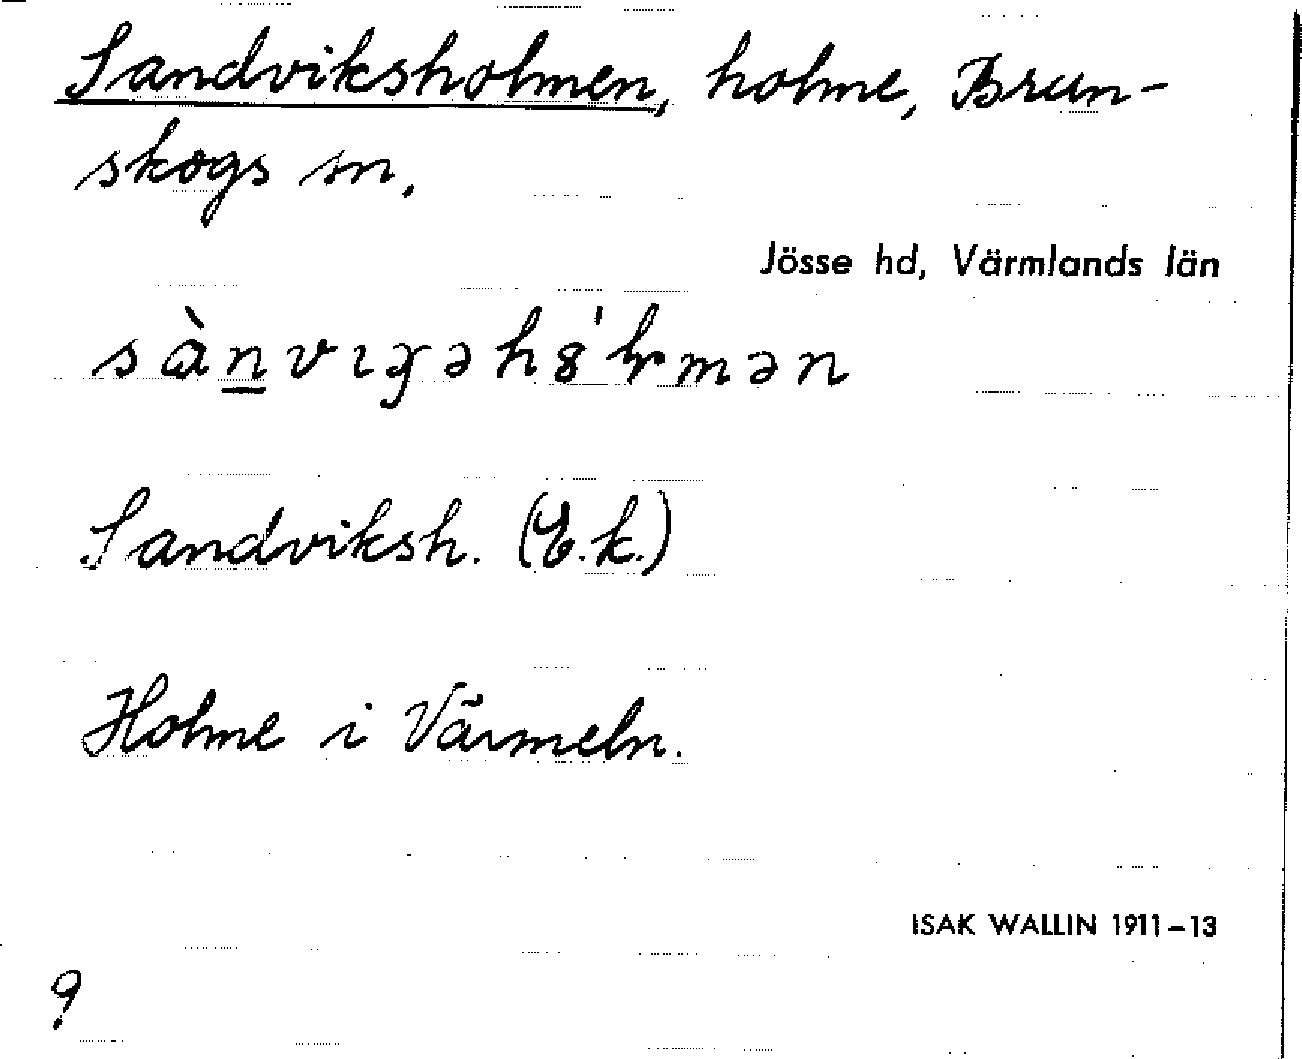 Sandviksholmen, holme, Brun-
skogs sn.
Jösse hd, Värmlands län
Sandviksh. (E.k.)
Holme i Värmeln.
ISAK WALLIN 1911-13
9